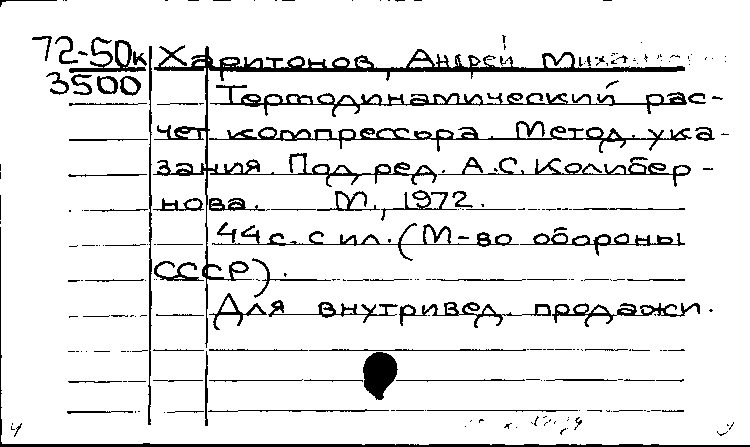 72-50к Харитонов, Андрей
3500 Термодинамический рас-
чет компрессора. Метод. ука-
зания. Под ред. А.С. Колибер-
нова. М., 1972.
44 с. с ил. (М-во обороны
СССР).
Для внутривед. продажи.